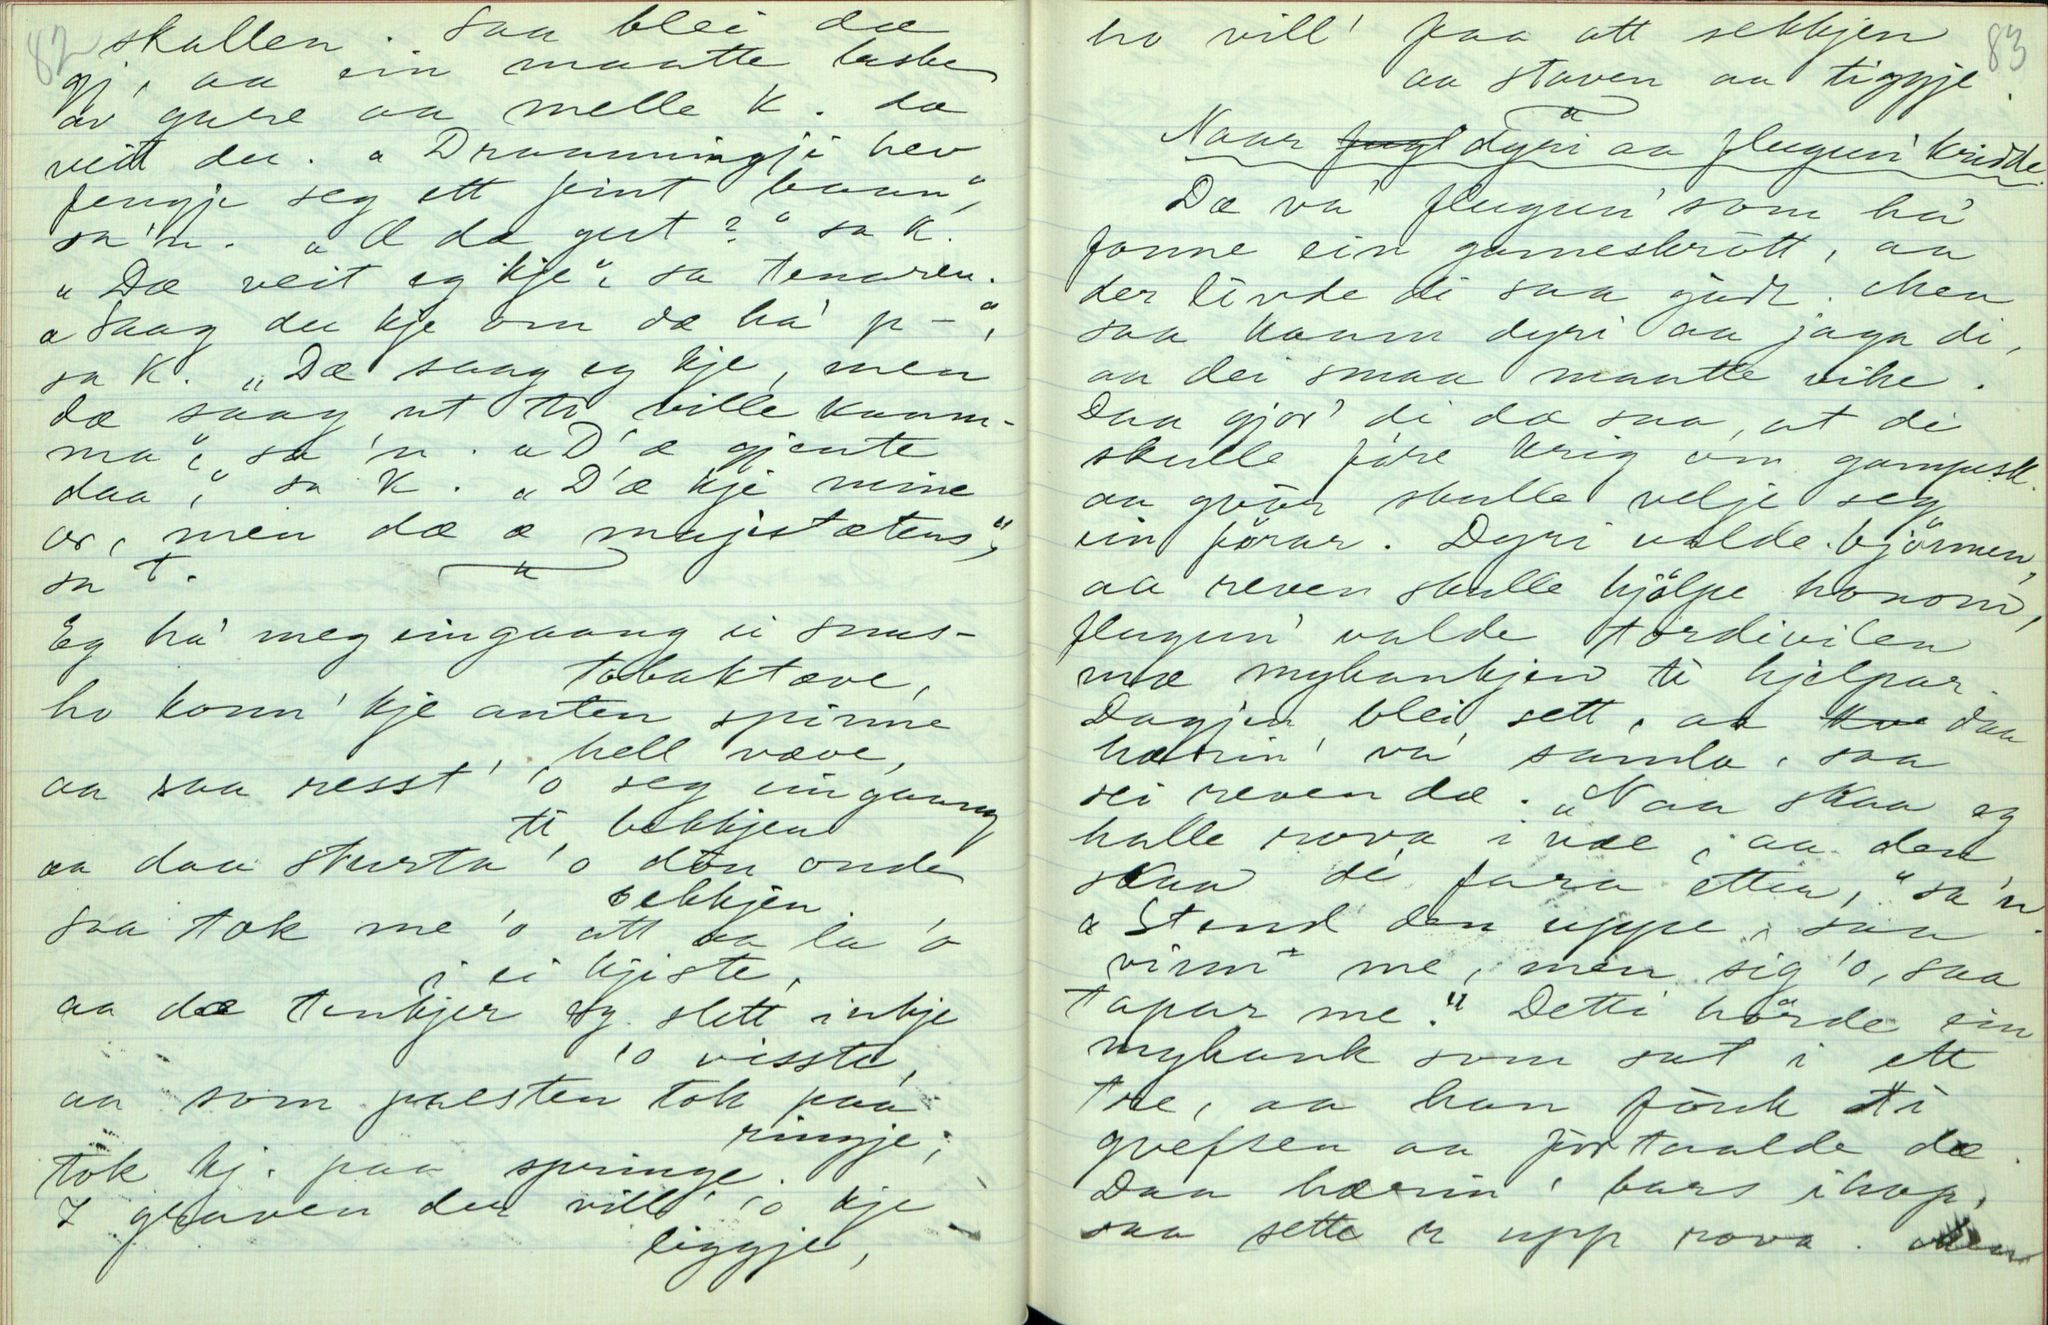 82
skallen. Saa blei dæ
gj, aa ein maatte laske
av gulre aa melle K. da
veit du. "Dronningji hev
fengje seg ett fint baan",
sa'n. "Æ dæ gut?" sa K.
"Dæ veit eg kje", sa tenaren.
"Saag du kje om dæ ha' p-",
sa K. "Dæ saag eg kje, men
dæ saag ut te ville kaam-
ma", sa 'n. "D'æ gjente
daa", sa K. "D'æ kje mine
or, men dæ æ majestætens",
sa T.
Eg ha' meg eingaang ei snus-
tobaktæve,
ho konn' kje anten spinne
hell væve,
aa saa resst' 'o seg eingaang
ti bekkjen
aa daa skursta 'o den onde
sekkjen
Saa tok me 'o att aa la 'o
i ei kjiste,
aa dæ tenkjer eg slett inkje
'o visste,
aa som presten tok paa
ringje,
tok kj. paa springe.
I graven der vill' 'o kje
liggje,
83
ho vill' paa att sekkjen
aa staven aa tiggje.
Naar fugl dyri aa flugun' kridde.
Dæ va' flugun' som ha'
fonne ein gameskrott, aa
der livde di saa gudt. Men
saa kaam dyri aa jaga di,
aa dei smaa maatte vike.
Daa gjor' di dæ saa, at di
skulle føre krig om gampesk.
aa gvør skulle velje seg
ein førar. Dyri valde bjørnen,
aa reven skulle hjølpe honom,
flugun' valde tordivilen
mæ mykankjen ti hjelpar.
Dagjen blei sett, aa kve daa
hærin' va' samla, saa
sei reven dæ. "Naa skaa eg
halle rova i væe, aa den
skaa di fara etter," sa 'n.
"Stend den uppe, saa
vinn' me, men sig 'o, saa
tapar me." Detti hørde ein
mykank som sat i ett
tre, aa han fouk ti
gvefsen aa fortaalde dæ.
Daa hærin' bars ihop,
saa sette r upp rova. Men